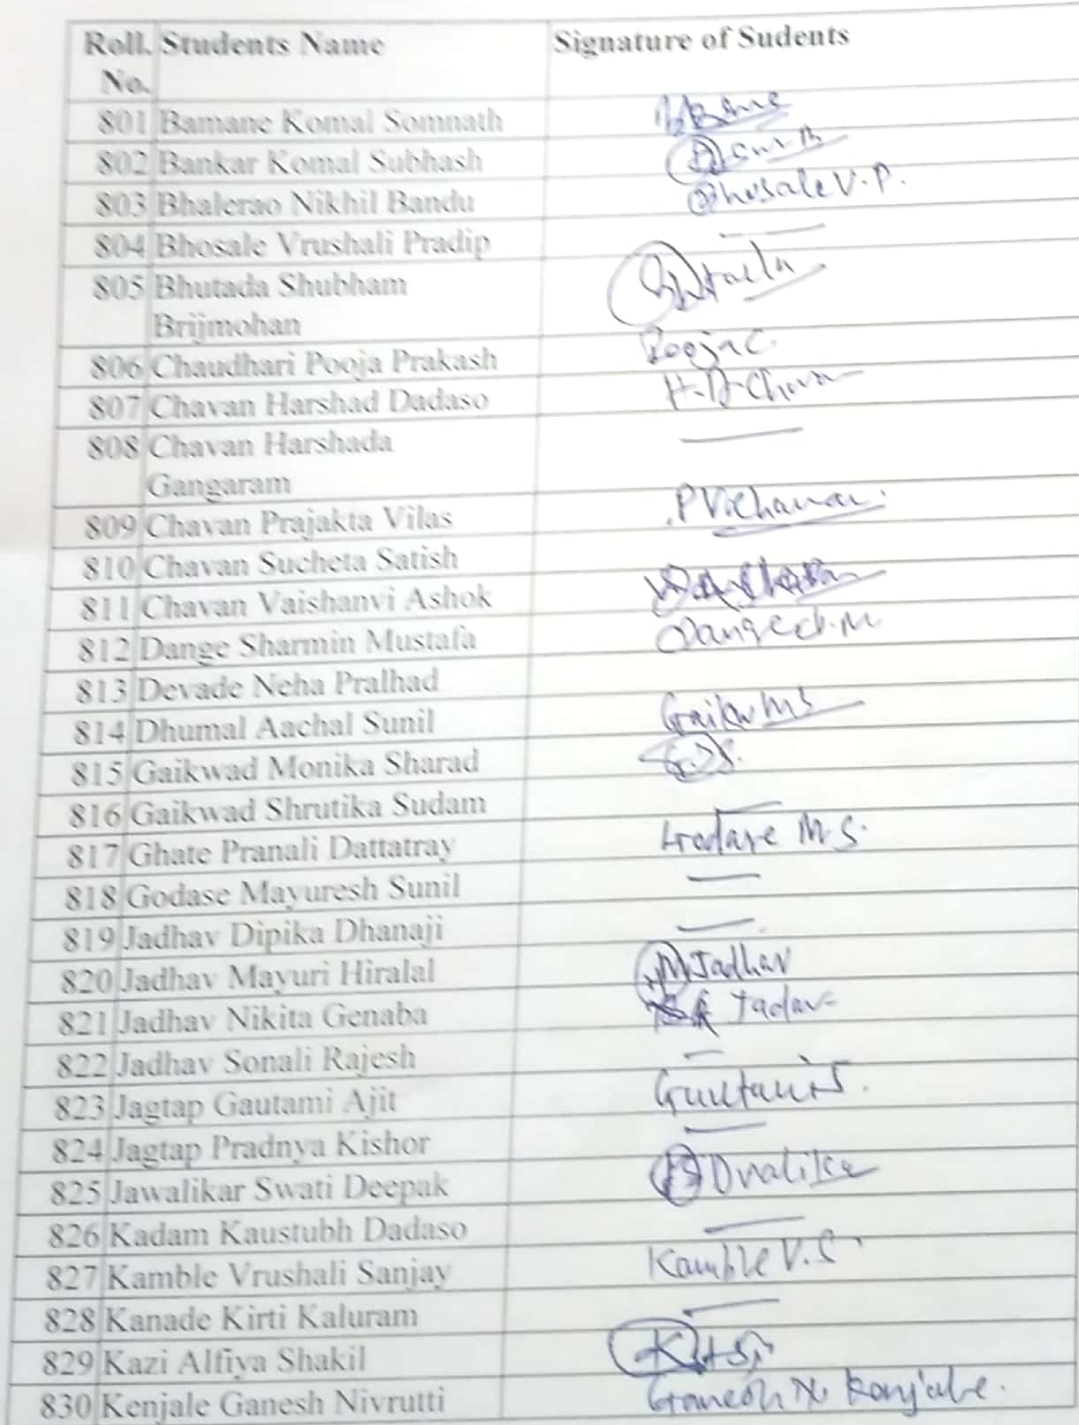 Roll. Students Name Signature of Sudents
No.
801 Bamane Komal Somnath
802 Bankar Komal Subhash
803 Bhalerao Nikhil Bandu Bhosale V.P.
804 Bhosale Vrushali Pradip
805 Bhutada Shubham
Brijmohan
806 Chaudhari Pooja Prakash Pooja C.
807 Chavan Harshad Dadaso H.D.Chavan
808 Chavan Harshada
Gangaram
809 Chavan Prajakta Vilas P.V.Chavan.
810 Chavan Sucheta Satish
811 Chavan Vaishanvi Ashok
812 Dange Sharmin Mustafa Dange
813 Devade Neha Pralhad
814 Dhumal Aachal Sunil
815 Gaikwad Monika Sharad
816 Gaikwad Shrutika Sudam
817 Ghate Pranali Dattatray M.S.
818 Godase Mayuresh Sunil
819 Jadhav Dipika Dhanaji
820 Jadhav Mayuri Hiralal Jadhav
821 Jadhav Nikita Genaba
822 Jadhav Sonali Rajesh
823 Jagtap Gautami Ajit
824 Jagtap Pradnya Kishor
825 Jawalikar Swati Deepak
826 Kadam Kaustubh Dadaso
827 Kamble Vrushali Sanjay Kamble V.S.
828 Kanade Kirti Kaluram
829 Kazi Alfiya Shakil
830 Kenjale Ganesh Nivrutti Ganesh N. Kenjale.